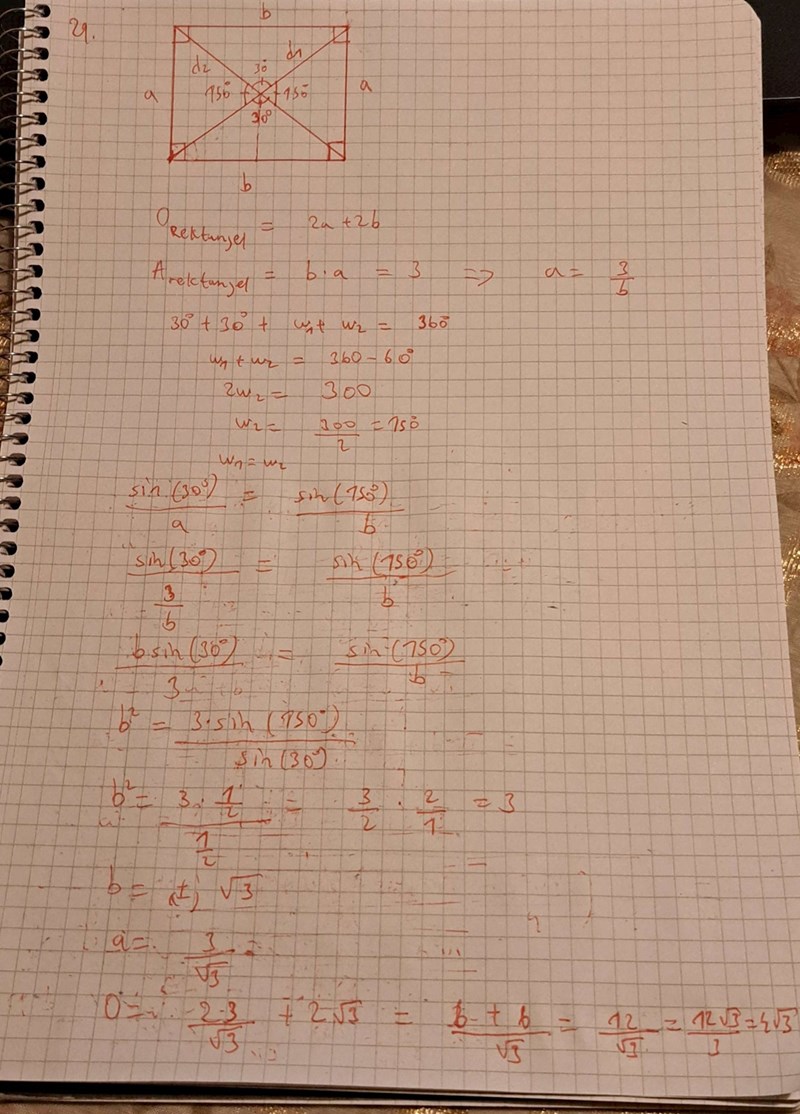 21.
b
d2 d1
30°
a 150° 150° a
30°
b
O rektangel = 2a + 2b
A rektangel = b · a = 3 => a = 3/b
30° + 30° + w1 + w2 = 360°
w1 + w2 = 360 - 60°
2w2 = 300
w2 = 300/2 = 150
w1 = w2
sin(30°)/a = sin(150°)/b
sin(30°)/(3/b) = sin(150°)/b
b sin(30°)/3 = sin(150°)/b
b² = 3·sin(150°)/sin(30°)
b² = (3 · 1/2)/(1/2) = 3/2 · 2/1 = 3
b = (±) √3
a = 3/√3
O = 2·3/√3 + 2√3 = (6 + 6)/√3 = 12/√3 = 12√3/3 = 4√3